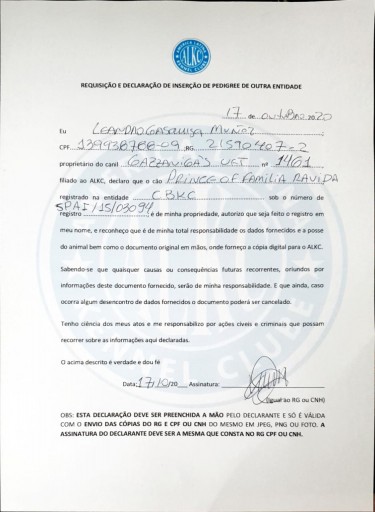 AMERICA LATINA
ALKC
KENNEL CLUBE
REQUISIÇÃO E DECLARAÇÃO DE INSERÇÃO DE PEDIGREE DE OUTRA ENTIDADE
17 de outubro 2020
Eu LEANDRO GASQUISA MUÑOZ
CPF 139938788-09 ,RG 21590407-2
proprietário do canil GAZZANIGAS VGT nº 1461
filiado ao ALKC, declaro que o cão PRINCE OF FAMILIA RAVIDA
registrado na entidade CBKC sob o número de
registro SPAI/15/03094 é de minha propriedade, autorizo que seja feito o registro em
meu nome, e reconheço que é de minha total responsabilidade os dados fornecidos e a posse
do animal bem como o documento original em mãos, onde forneço a cópia digital para o ALKC.
Sabendo-se que quaisquer causas ou consequências futuras recorrentes, oriundos por
informações deste documento fornecido, serão de minha responsabilidade. E que ainda, caso
ocorra algum desencontro de dados fornecidos o documento poderá ser cancelado.
Tenho ciência dos meus atos e me responsabilizo por ações cíveis e criminais que possam
recorrer sobre as informações aqui declaradas.
O acima descrito é verdade e dou fé
Data: 17/10/20 Assinatura:
(Igual ao RG ou CNH)
OBS: ESTA DECLARAÇÃO DEVE SER PREENCHIDA A MÃO PELO DECLARANTE E SÓ É VÁLIDA
COM O ENVIO DAS CÓPIAS DO RG E CPF OU CNH DO MESMO EM JPEG, PNG OU FOTO. A
ASSINATURA DO DECLARANTE DEVE SER A MESMA QUE CONSTA NO RG CPF OU CNH.